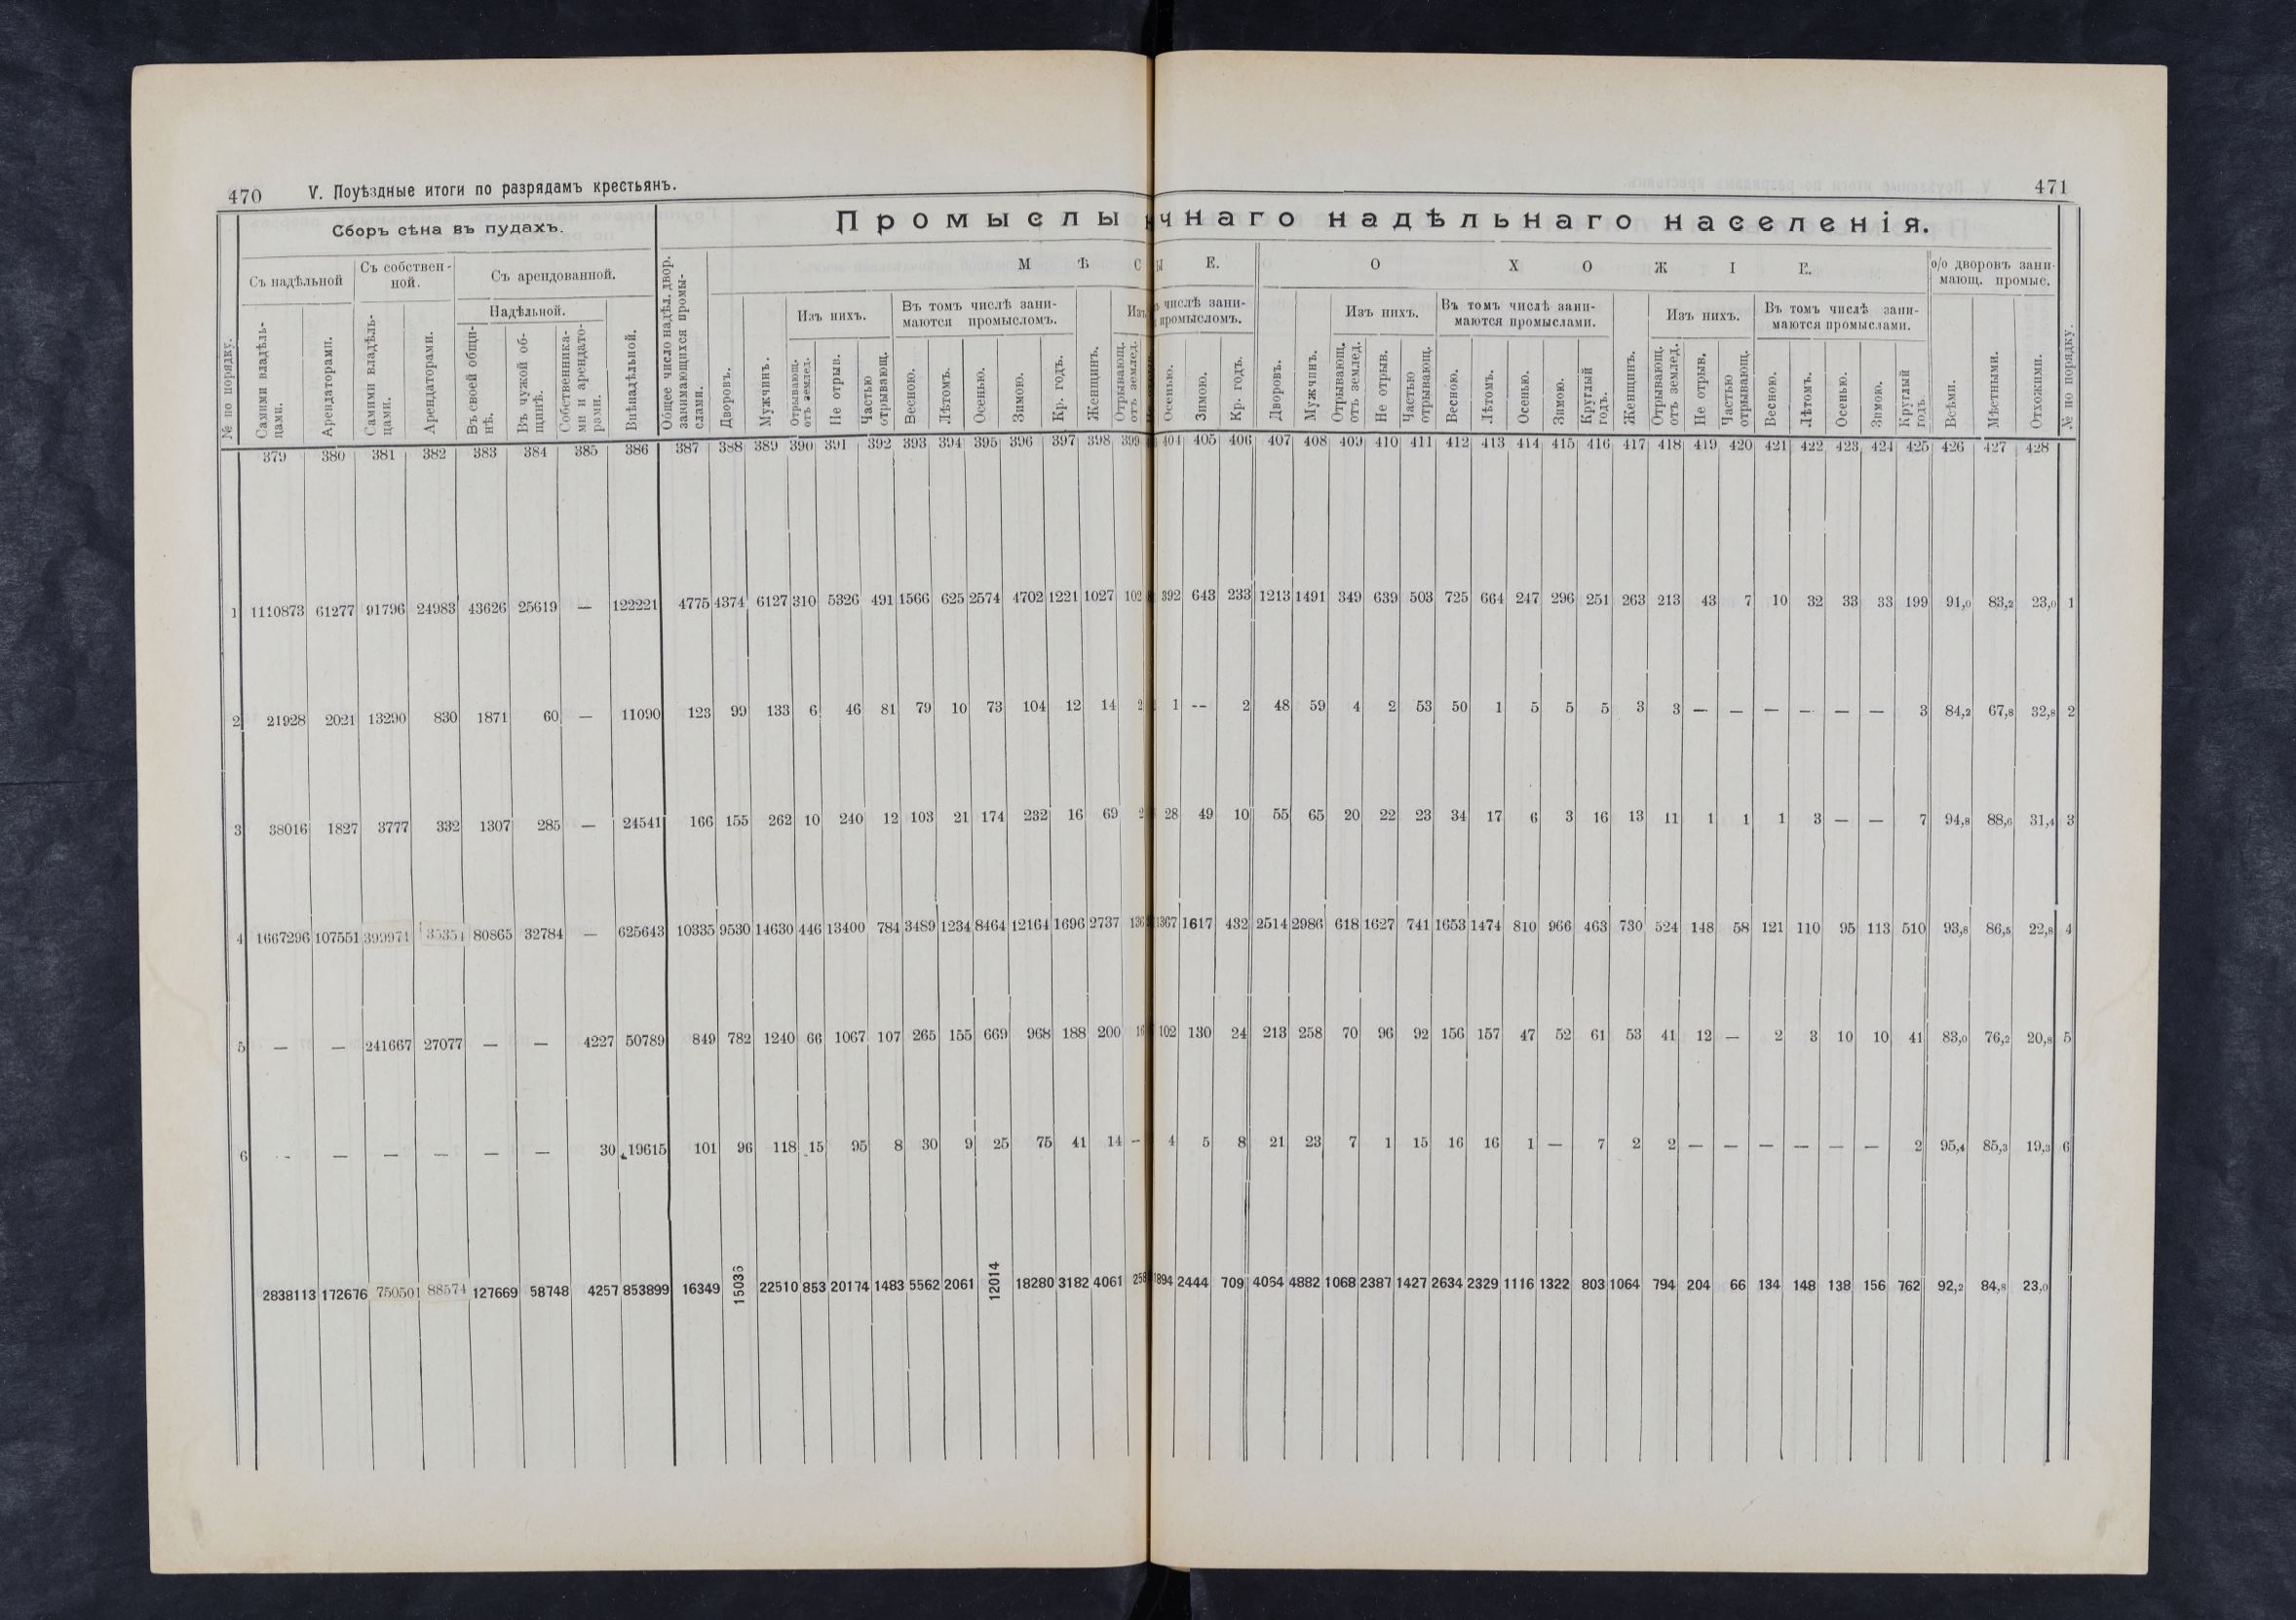 470 V. Поуѣздные итоги по разрядамъ крестьянъ.
471
Сборъ сѣна въ пудахъ.
Промыслы
чнаго надѣльнаго населенія.
№ по порядку.
Съ надѣльной
Съ собствен-
ной.
Съ арендованной.
Надѣльной.
Самими владѣль-
цами.
Арендаторами.
Самими владѣль-
цами.
Арендаторами.
Въ своей общи-
нѣ.
Въ чужой об-
щинѣ.
Собственника-
ми и арендато-
рами.
Внѣнадѣльной.
Общее число надѣл. двор.
занимающихся промы-
слами.
М Ѣ С
Дворовъ.
Мужчинъ.
Изъ нихъ.
Отрывающ.
отъ землед.
Не отрыв.
Частью
отрывающ.
Въ томъ числѣ зани-
маются промысломъ.
Весною.
Лѣтомъ.
Осенью.
Зимою.
Кр. годъ.
Женщинъ.
Изъ
Отрывающ.
отъ землед.
Е.
числѣ зани-
промысломъ.
Осенью.
Зимою.
Кр. годъ.
О Х О Ж І Е.
Дворовъ.
Мужчинъ.
Изъ нихъ.
Отрывающ.
отъ землед.
Не отрыв.
Частью
отрывающ.
Въ томъ числѣ зани-
маются промыслами.
Весною.
Лѣтомъ.
Осенью.
Зимою.
Круглый
годъ.
Женщинъ.
Изъ нихъ.
Отрывающ.
отъ землед.
Не отрыв.
Частью
отрывающ.
Въ томъ числѣ зани-
маются промыслами.
Весною.
Лѣтомъ.
Осенью.
Зимою.
Круглый
годъ.
о/о дворовъ зани-
мающ. промыс.
Всѣми.
Мѣстными.
Отхожими.
№ по порядку.
379 380 381 382 383 384 385 386 387 388 389 390 391 392 393 394 395 396 397 398 399 404 405 406 407 408 409 410 411 412 413 414 415 416 417 418 419 420 421 422 423 424 425 426 427 428
1 1110873 61277 91796 24983 43626 25619 — 122221 4775 4374 6127 310 5326 491 1566 625 2574 4702 1221 1027 102 392 643 233 1213 1491 349 639 503 725 664 247 296 251 263 213 43 7 10 32 33 33 199 91,0 83,2 23,0 1
2 21928 2021 13290 830 1871 60 — 11090 123 99 133 6 46 81 79 10 73 104 12 14 2 1 -- 2 48 59 4 2 53 50 1 5 5 5 3 3 — — — — — — 3 84,2 67,8 32,8 2
3 38016 1827 3777 332 1307 285 — 24541 166 155 262 10 240 12 103 21 174 232 16 69 2 28 49 10 55 65 20 22 23 34 17 6 3 16 13 11 1 1 1 3 — — 7 94,8 88,6 31,4 3
4 1667296 107551 399971 35354 80865 32784 — 625643 10335 9530 14630 446 13400 784 3489 1234 8464 12164 1696 2737 136 1367 1617 432 2514 2986 618 1627 741 1653 1474 810 966 463 730 524 148 58 121 110 95 113 510 93,8 86,5 22,8 4
5 — — 241667 27077 — — 4227 50789 849 782 1240 66 1067 107 265 155 669 968 188 200 16 102 130 24 213 258 70 96 92 156 157 47 52 61 53 41 12 — 2 3 10 10 41 83,0 76,2 20,8 5
6 - — — — — — 30 19615 101 96 118 15 95 8 30 9 25 75 41 14 — 4 5 8 21 23 7 1 15 16 16 1 — 7 2 2 — — — — — — 2 95,4 85,3 19,3 6
2838113 172676 750501 88574 127669 58748 4257 853899 16349 15036 22510 853 20174 1483 5562 2061 12014 18280 3182 4061 258 1894 2444 709 4064 4882 1068 2387 1427 2634 2329 1116 1322 803 1064 794 204 66 134 148 138 156 762 92,2 84,8 23,0